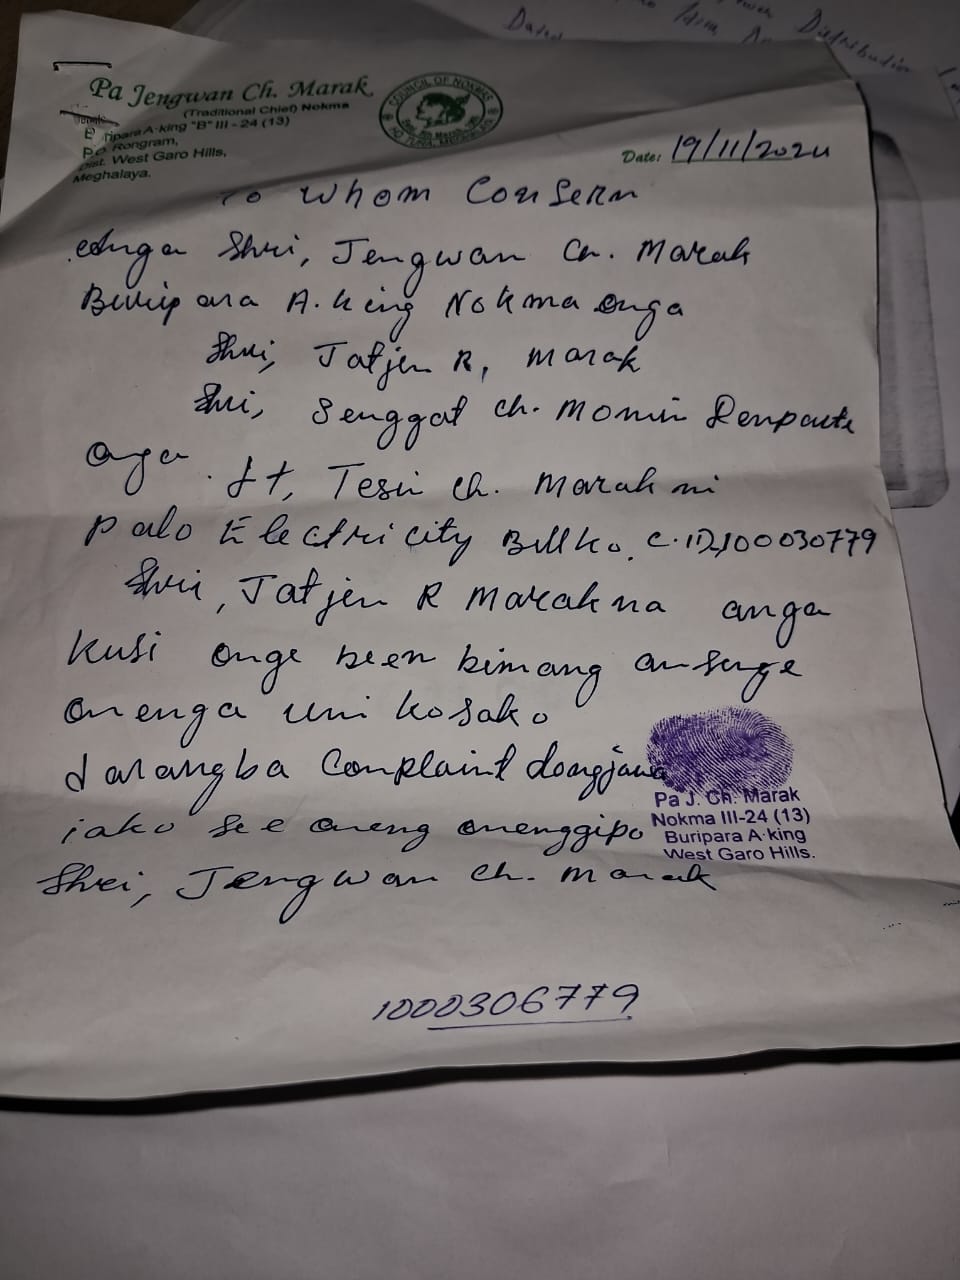 Pa Jengwan Ch. Marak
(Traditional Chief) Nokma
Buripara A·king "B" III - 24 (13)
P.O. Rongram,
Dist. West Garo Hills,
Meghalaya.
COUNCIL OF NOKMAS
Date: 19/11/2024
To Whom Consern
Anga Shri, Jengwan Ch. Marak
Buripara A.king Nokma onga
Shri, Jatjen R, Marak
Shri, Senggat Ch. Momin
onga. Lt, Tesin Ch. Marak ni
palo Electricity Billko. C.ID,100030779
Shri, Jatjen R Marak na anga
kusi onge been bimang ansenge
onenga uni kosako
darangba Complaint dongjawa
iako see oneng onenggipo
Shri, Jengwan Ch. Marak
Pa J. Ch. Marak
Nokma III-24 (13)
Buripara A·king
West Garo Hills.
1000306779
Dated
Distribution